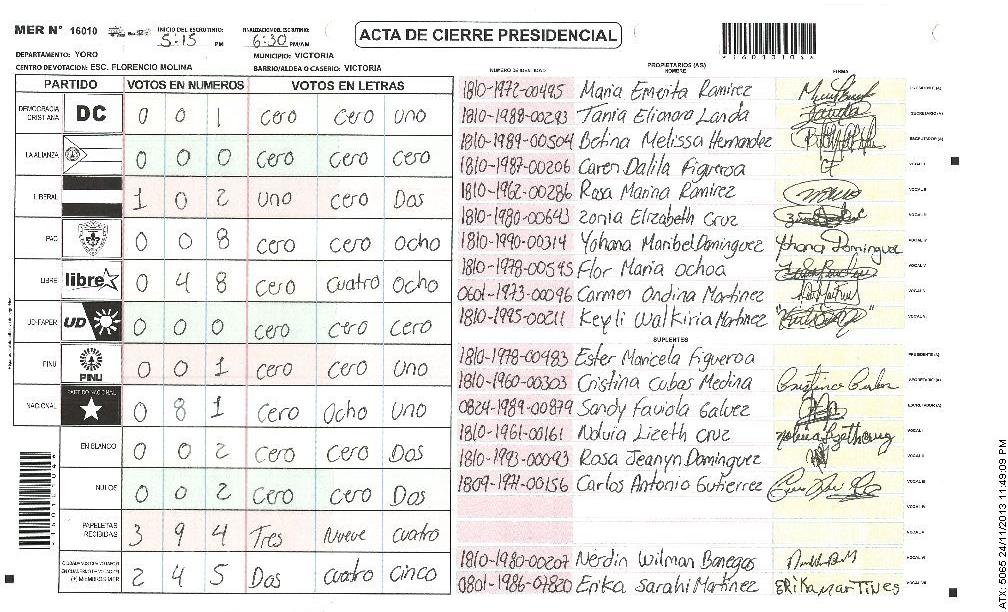 MER Nº 16010 INICIO DEL ESCRUTINIO: 5:15 PM FINALIZACION DEL ESCRUTINIO: 6:30 PM/AM ACTA DE CIERRE PRESIDENCIAL *1601010*
DEPARTAMENTO: YORO MUNICIPIO: VICTORIA
CENTRO DE VOTACION: ESC. FLORENCIO MOLINA BARRIO/ALDEA O CASERIO: VICTORIA
PARTIDO VOTOS EN NUMEROS VOTOS EN LETRAS
DEMOCRACIA CRISTIANA DC 0 0 1 cero cero uno
LA ALIANZA 0 0 0 cero cero cero
LIBERAL 1 0 2 uno cero Dos
PAC 0 0 8 cero cero ocho
LIBRE libre 0 4 8 cero cuatro ocho
UD-FAPER UD 0 0 0 cero cero cero
PINU PINU 0 0 1 cero cero uno
NACIONAL PARTIDO NACIONAL 0 8 1 Cero Ocho Uno
EN BLANCO 0 0 2 cero cero Dos
NULOS 0 0 2 Cero cero Dos
PAPELETAS RECIBIDAS 3 9 4 Tres Nueve cuatro
(+) MIEMBROS MER 2 4 5 Dos cuatro cinco
NUMERO DE IDENTIDAD PROPIETARIOS (AS) NOMBRE FIRMA
1810-1972-00495 Maria Emerita Ramirez PRESIDENTE (A)
1810-1988-00293 Tania Elionora Landa SECRETARIO (A)
1810-1989-00504 Betina Melissa Hernandez ESCRUTADOR (A)
1810-1987-00206 Caren Dalila Figueroa VOCAL I
1810-1962-00286 Rosa Marina Ramirez VOCAL II
1810-1980-00643 Zonia Elizabeth Cruz VOCAL III
1810-1990-00314 Yohana Maribel Dominguez Yohana Dominguez VOCAL IV
1810-1978-00545 Flor Maria Ochoa VOCAL V
0601-1973-00096 Carmen Ondina Martinez
1810-1995-00211 Keyli Walkiria Martinez
SUPLENTES
1810-1978-00983 Ester Maricela Figueroa PRESIDENTE (A)
1810-1960-00303 Cristina Cubas Medina SECRETARIO (A)
0824-1989-00879 Sandy Faviola Galvez ESCRUTADOR (A)
1810-1961-00161 Nolvia Lizeth Cruz VOCAL I
1810-1993-00093 Rosa Jeanyn Dominguez VOCAL II
1809-1971-00156 Carlos Antonio Gutierrez VOCAL III
VOCAL IV
VOCAL V
1810-1980-00207 Nerdin Wilman Banegas VOCAL VI
0801-1986-07820 Erika Sarahi Martinez ERIKA MARTINES VOCAL VII
ATX: 5065 24/11/2013 11:49:09 PM